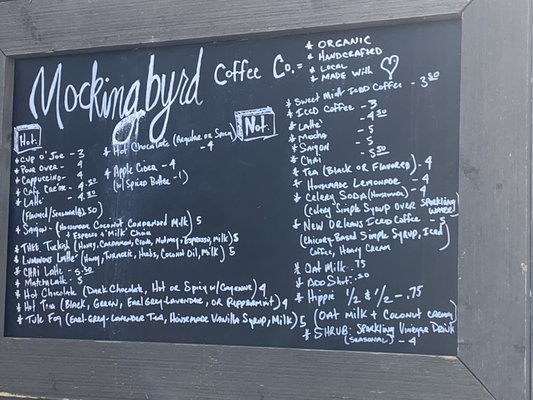 Mockingbyrd Coffee Co.
* ORGANIC
* HANDCRAFTED
* LOCAL
* MADE WITH
Hot.
* CUP O' JOE - 3
* POUR OVER - 4
* CAPPUCCINO - 4
* CAFE CREME - 4.50
* LATTE - 4.50
(FLAVORED/SEASONAL).50
* Hot Chocolate (Regular or Spicy) - 4
* Apple Cider - 4
(w/ Spiced Butter - 1)
* SAIGON - (HOMEMADE COCONUT CONDENSED MILK) 5
+ ESPRESSO & MILK
* THEE TURKISH (HONEY, CARDAMOM, NUTMEG, ESPRESSO, MILK) 5
* LUMINOUS LATTE (HONEY, TURMERIC, HERBS, COCONUT OIL, MILK) 5
* CHAI LATTE - 5.50
* MATCHA LATTE - 5
* HOT CHOCOLATE (DARK CHOCOLATE, HOT OR SPICY W/CAYENNE) 4
* HOT TEA (BLACK, GREEN, EARL GREY-LAVENDER, OR PEPPERMINT) 4
* TULE FOG (EARL-GREY-LAVENDER TEA, HOUSEMADE VANILLA SYRUP, MILK) 5
Not.
* SWEET MINT ICED COFFEE - 3.50
* ICED COFFEE - 3
* LATTE - 4.50
* MOCHA - 5
* SAIGON - 5
* CHAI - 5.50
* TEA (BLACK OR FLAVORED) - 4
* HOMEMADE LEMONADE - 4
* CELERY SODA (HOMEMADE) - 4
(CELERY SIMPLE SYRUP OVER SPARKLING WATER)
* NEW ORLEANS ICED COFFEE - 5
(CHICORY-BASED SIMPLE SYRUP, ICED COFFEE, HEAVY CREAM)
* OAT MILK - .75
* ADD SHOT - .50
* HIPPIE 1/2 & 1/2 - .75
(OAT MILK + COCONUT CREAM)
* SHRUB: SPARKLING VINEGAR DRINK
(SEASONAL) - 4